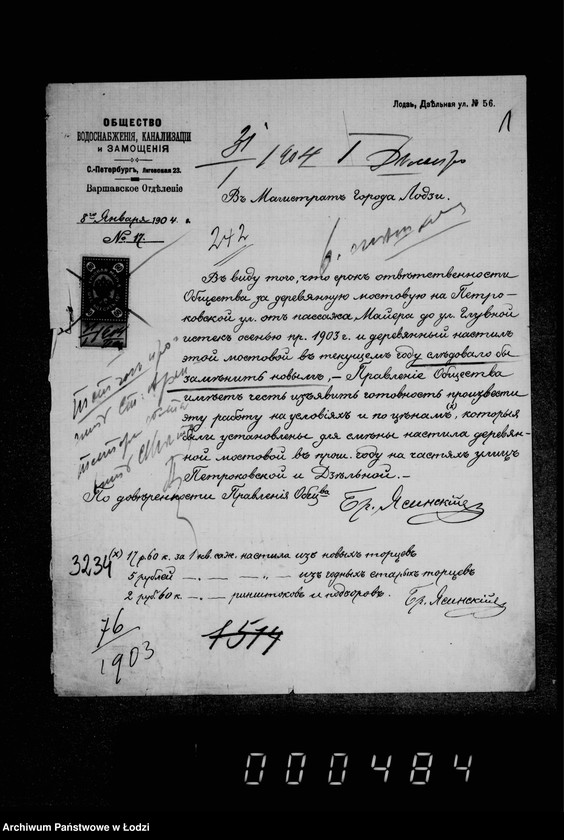 Лодзь, Дѣльная ул. № 56.
1
ОБЩЕСТВО
ВОДОСНАБЖЕНІЯ, КАНАЛИЗАЦІИ
и ЗАМОЩЕНІЯ
С.-Петербургъ, Лиговская 23.
Варшавское Отдѣленіе
8го Января 1904 г.
№ 17.
31/1 1904 I
Въ Магистратъ Города Лодзи.
242
Въ виду того, что срокъ отвѣтственности
Общества за деревянную мостовую на Петро-
ковской ул. отъ пассажа Майера до ул. Глувной
истекъ осенью пр. 1903 г. и деревянный настилъ
этой мостовой въ текущемъ году слѣдовало бы
замѣнить новымъ, – Правленіе Общества
имѣетъ честь изъявить готовность произвести
эту работу на условіяхъ и по цѣнамъ х), которыя
были установлены для смѣны настила деревян-
ной мостовой въ прош. году на частяхъ улицъ
Петроковской и Дзѣльной. –
По довѣренности Правленія Общва
Бр. Ясинскій
3234
х) 17 р. 60 к. за 1 кв. саж. настила изъ новыхъ торцевъ
5 рублей –„– –„– изъ годныхъ старыхъ торцевъ
2 руб. 60 к. –„– ринштоковъ и подзоровъ. Бр. Ясинскій
76/1903
1514
000484
Archiwum Państwowe w Łodzi